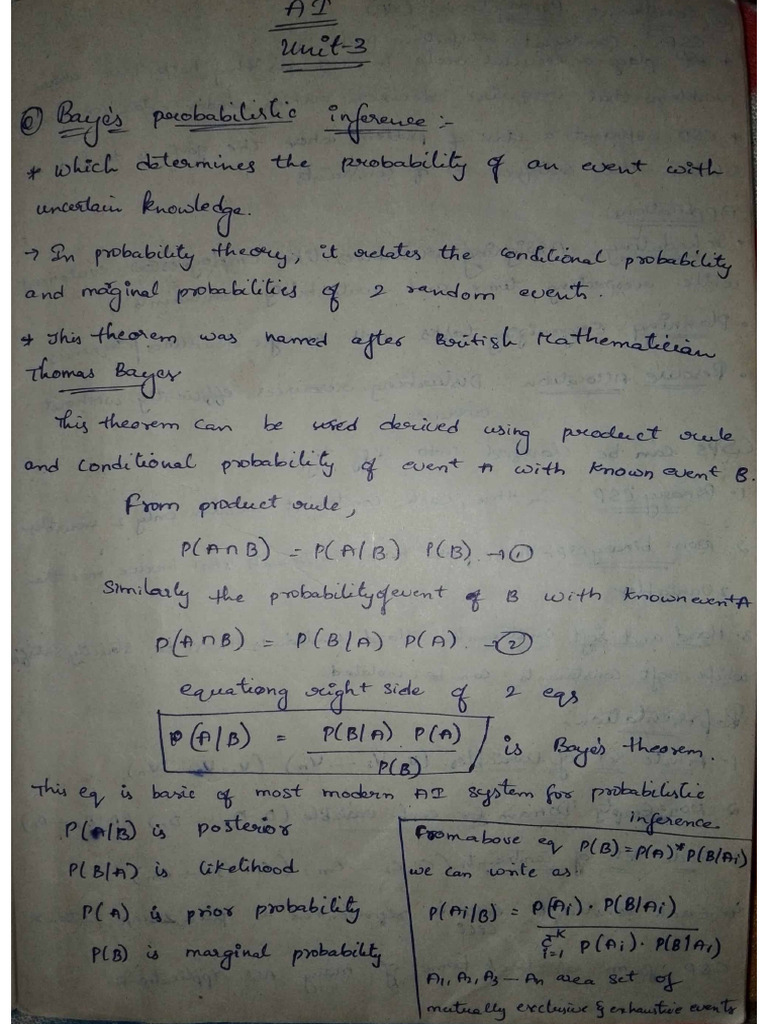 AI
Unit-3
Baye's probabilistic inference :-
* which determines the probability of an event with
uncertain knowledge.
→ In probability theory, it relates the conditional probability
and marginal probabilities of 2 random events.
* This theorem was named after British Mathematician
Thomas Bayes
This theorem can be used derived using product rule
and conditional probability of event A with known event B.
From product rule,
P(A∩B) = P(A/B) P(B). → ①
Similarly the probability of event of B with known event A
P(A∩B) = P(B/A) P(A). → ②
equationg right side of 2 eqs
P(A/B) = P(B/A) P(A) / P(B) is Baye's theorem.
This eq is basic of most modern AI system for probabilistic
inference
P(A/B) is posterior
P(B/A) is likelihood
P(A) is prior probability
P(B) is marginal probability
From above eq P(B) = P(A)* P(B/Ai)
we can write as:
P(Ai/B) = P(Ai). P(B/Ai)
Σ i=1 K P(Ai). P(B/Ai)
A1, A2, A3 -- An area set of
mutually exclusive & exhaustive events